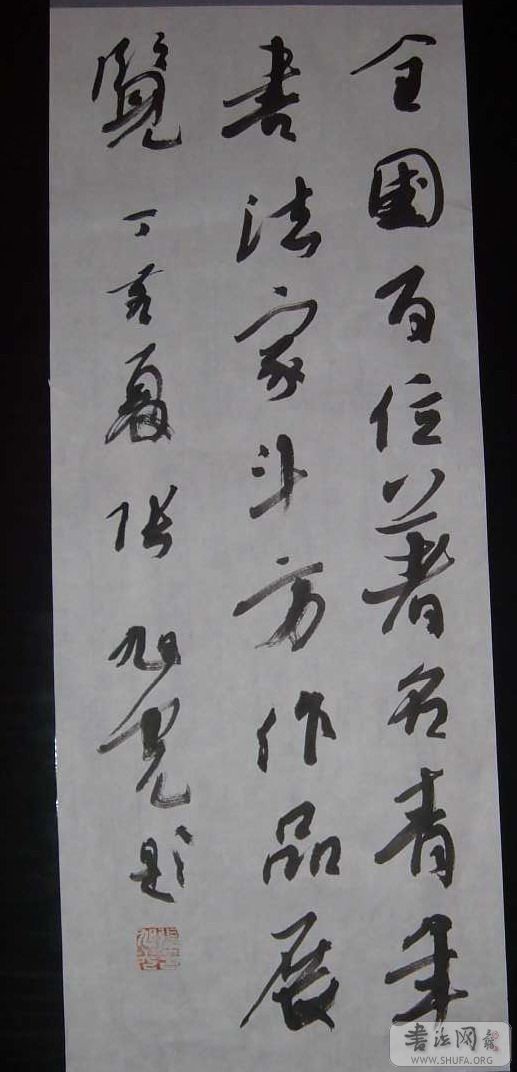 全國百位著名青年
書法家斗方作品展
覽 丁亥夏 張旭光題
書法网
WWW.SHUFA.ORG